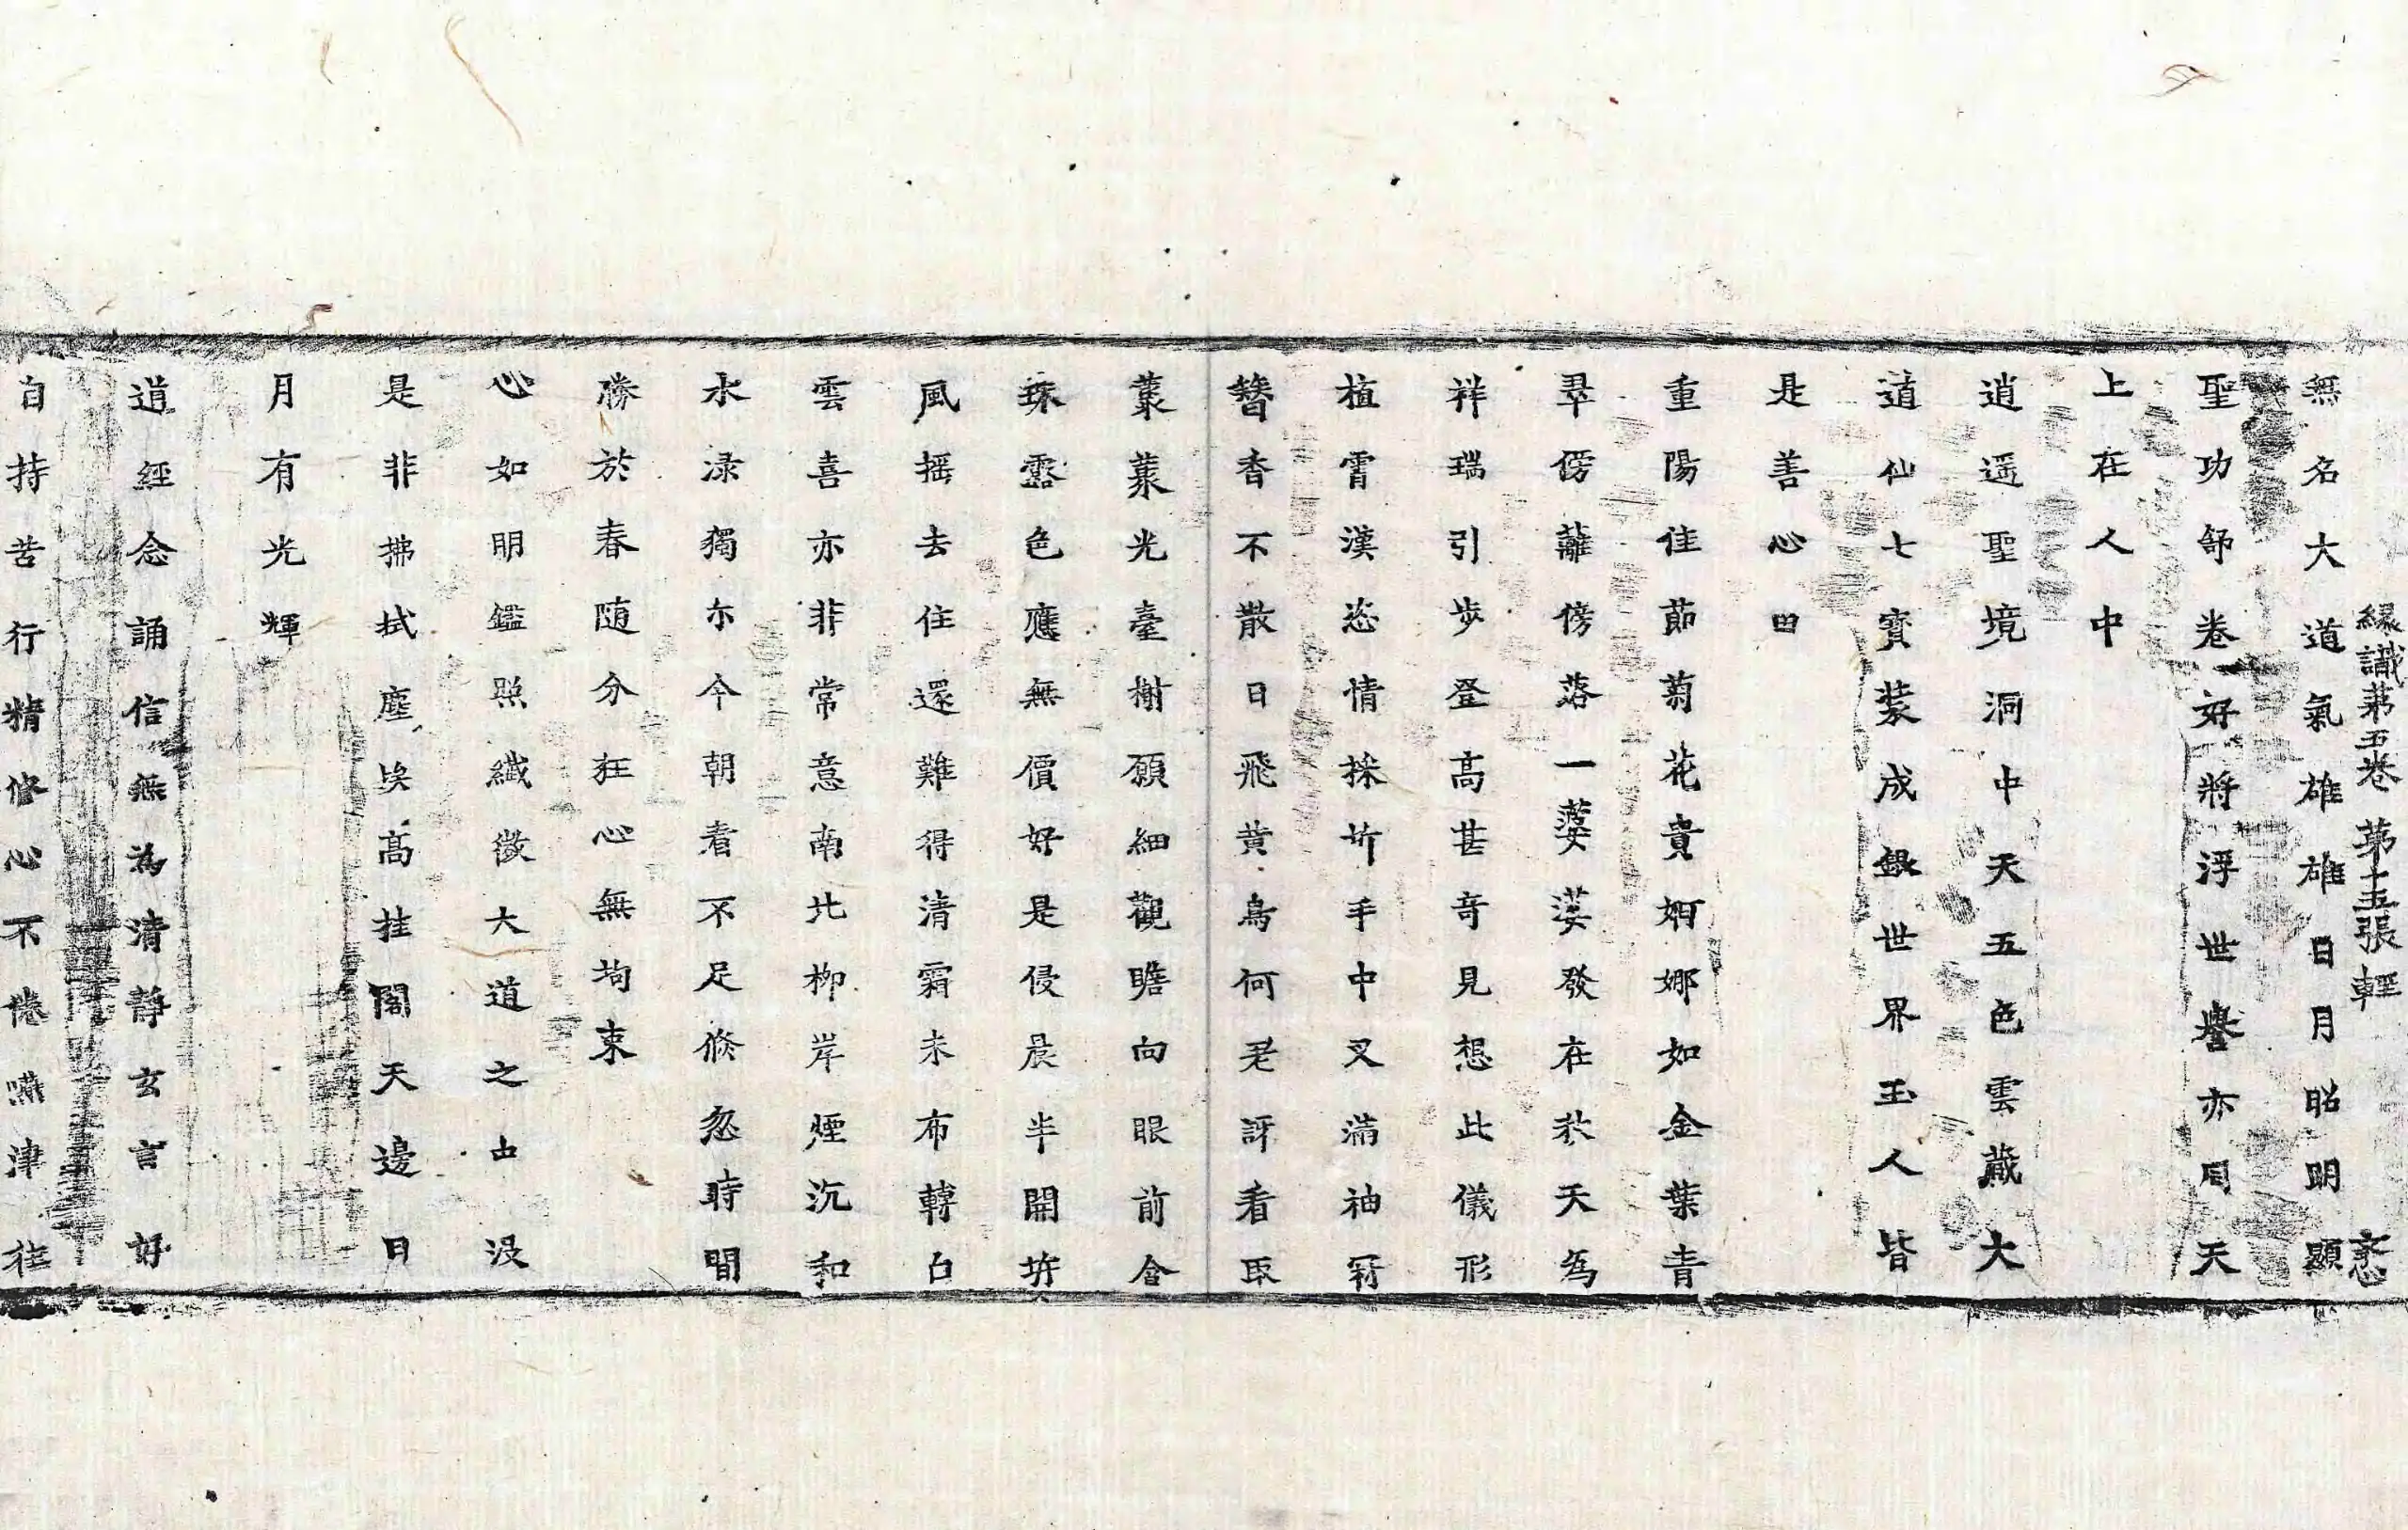 緣識第五卷 第十五張 輕 
無名大道氣雄雄日月昭明顯
聖功舒卷好將浮世譽亦同天
上在人中
逍遥聖境洞中天五色雲藏大
道仙七寶裝成銀世界玉人皆
是善心田
重陽佳節菊花貴婀娜如金葉青
翠傍蘺傍落一蔢蔢發在秋天為
祥瑞引步登高甚奇見想此儀形
植霄漢恣情採折手中叉滿袖冠
簪香不散日飛黃鳥何老訝看取
蘂蘂光臺榭願細觀瞻向眼前含
珠露色應無價好是侵晨半開坼
風摇去住還難得清霜未布轉白
雲喜亦非常意南北柳岸煙沉和
水渌獨尓今朝看不足倐忽時間
勝於春随分狂心無拘束
心如明鑑照纖微大道之由没
是非拂拭塵埃高挂閣天邊日
月有光輝
道經念誦信無為清靜玄言好
自持苦行精修心不倦嚥津往